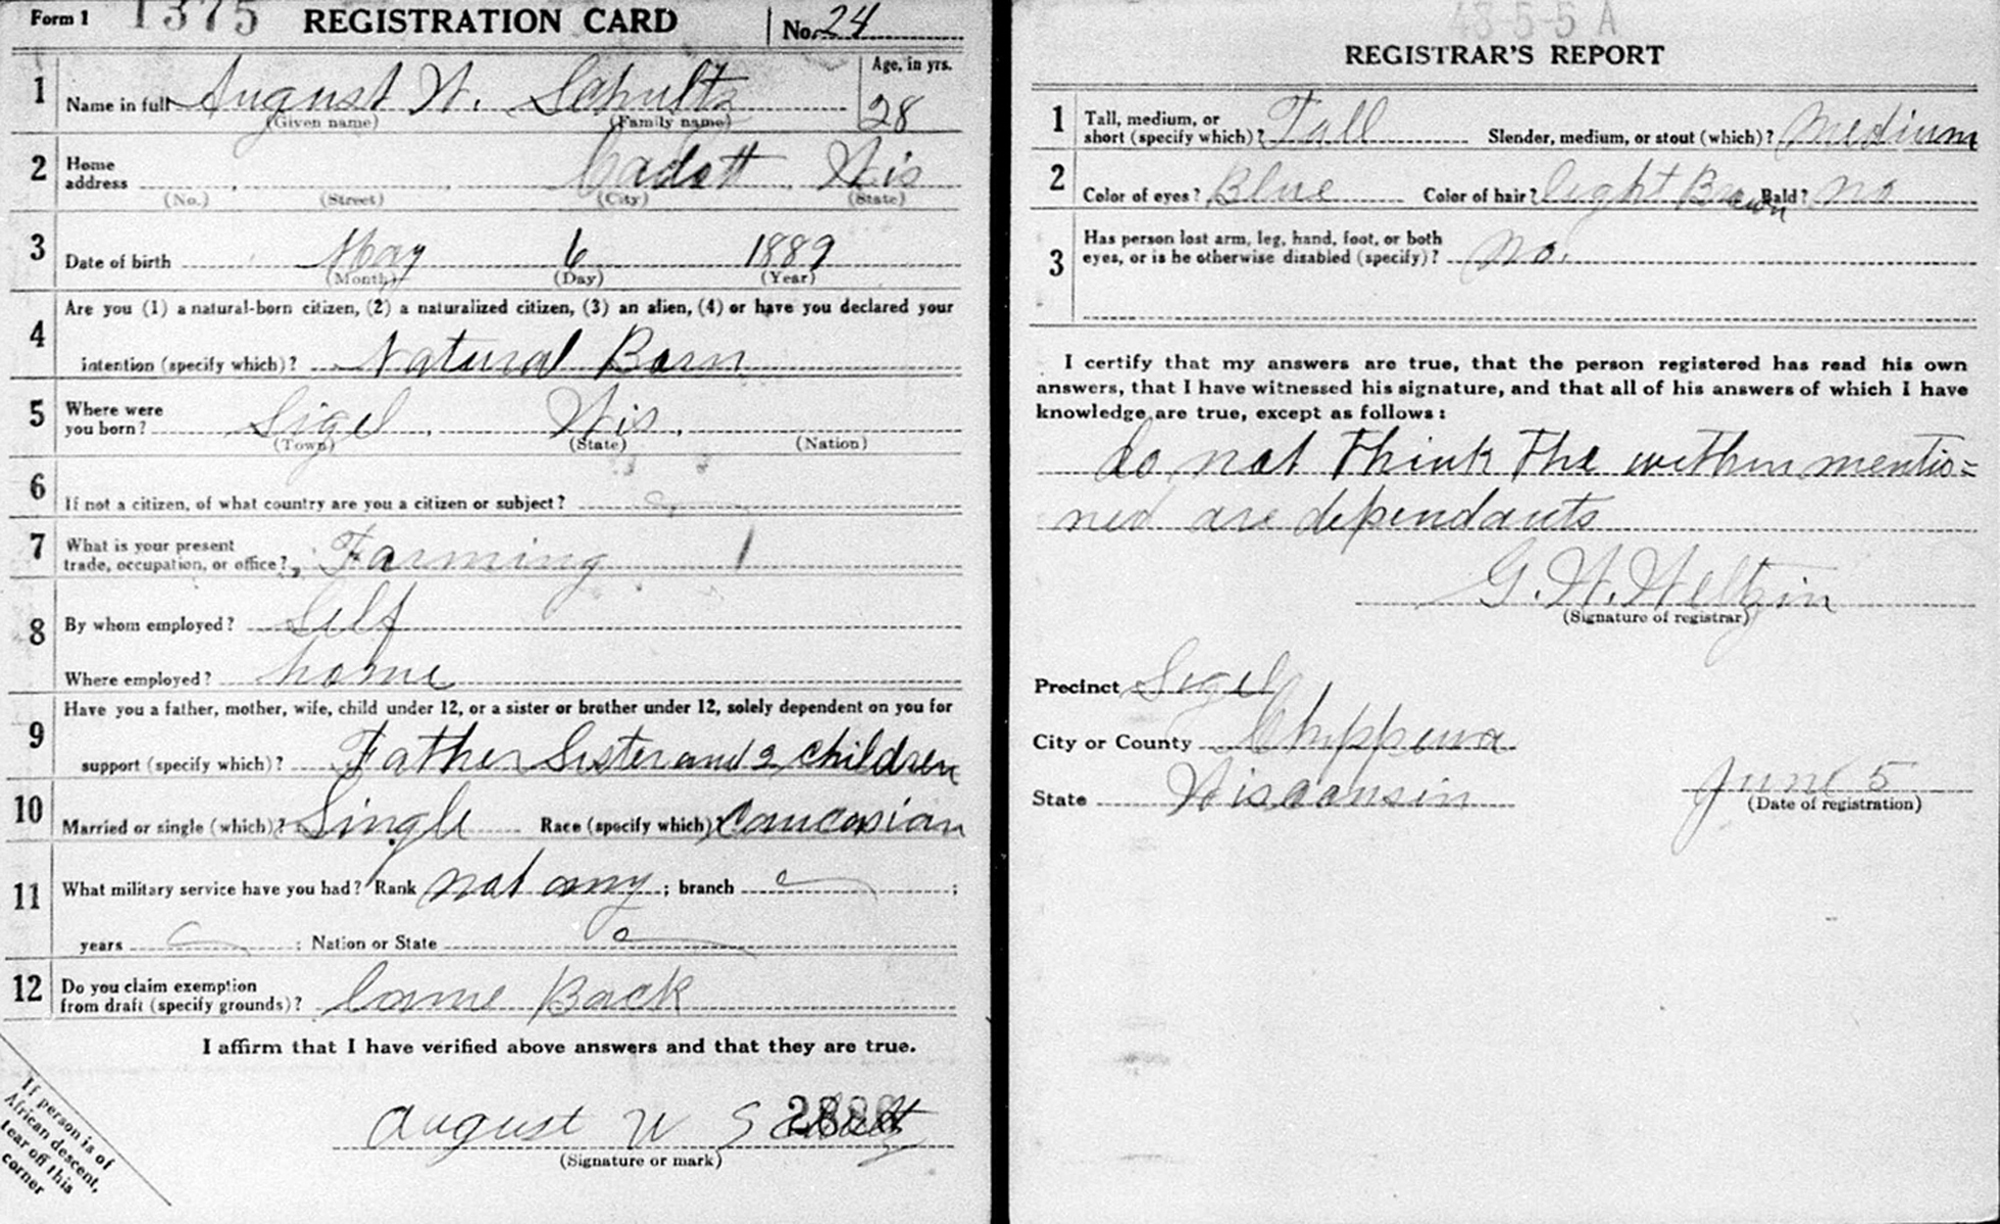 Form 1 1375 REGISTRATION CARD No. 24
1 Name in full August W. Schultz Age, in yrs. 28
(Given name) (Family name)
2 Home address Cadott Wis
(No.) (Street) (City) (State)
3 Date of birth May 6 1889
(Month) (Day) (Year)
4 Are you (1) a natural-born citizen, (2) a naturalized citizen, (3) an alien, (4) or have you declared your
intention (specify which)? Natural Born
5 Where were you born? Sigel, Wis.
(Town) (State) (Nation)
6 If not a citizen, of what country are you a citizen or subject?
7 What is your present
trade, occupation, or office? Farming
8 By whom employed? Self
Where employed? home
9 Have you a father, mother, wife, child under 12, or a sister or brother under 12, solely dependent on you for
support (specify which)? Father Sister and 2 children
10 Married or single (which)? Single Race (specify which)? Caucasian
11 What military service have you had? Rank not any; branch ;
years ; Nation or State
12 Do you claim exemption
from draft (specify grounds)? Lame Back
I affirm that I have verified above answers and that they are true.
August W Schultz
(Signature or mark)
If person is of
African descent,
tear off this
corner
REGISTRAR'S REPORT
1 Tall, medium, or
short (specify which)? Tall Slender, medium, or stout (which)? Medium
2 Color of eyes? Blue Color of hair? light Brown Bald? No
3 Has person lost arm, leg, hand, foot, or both
eyes, or is he otherwise disabled (specify)? No.
I certify that my answers are true, that the person registered has read his own
answers, that I have witnessed his signature, and that all of his answers of which I have
knowledge are true, except as follows:
do not think the within mentio=
ned are dependants
G. W. Weltzin
(Signature of registrar)
Precinct Sigel
City or County Chippewa
State Wisconsin June 5
(Date of registration)